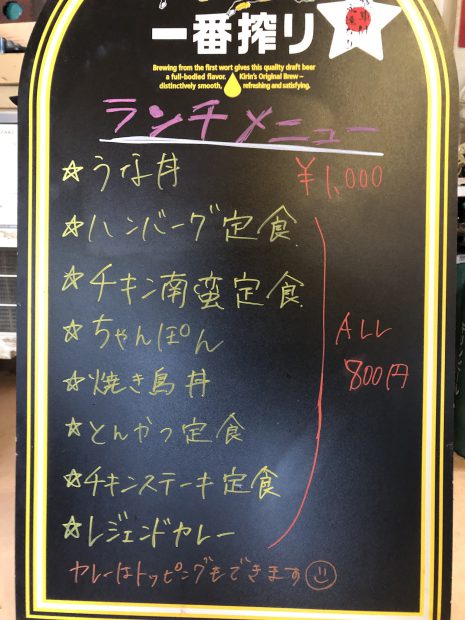 一番搾り
Brewing from the first wort gives this quality draft beer
a full-bodied flavor. Kirin's Original Brew –
distinctively smooth, refreshing and satisfying.
ランチメニュー
☆うな丼 ¥1,000
☆ハンバーグ定食
☆チキン南蛮定食
☆ちゃんぽん
ALL
800円
☆焼き鳥丼
☆とんかつ定食
☆チキンステーキ定食
☆レジェンドカレー
カレーはトッピングもできます☺